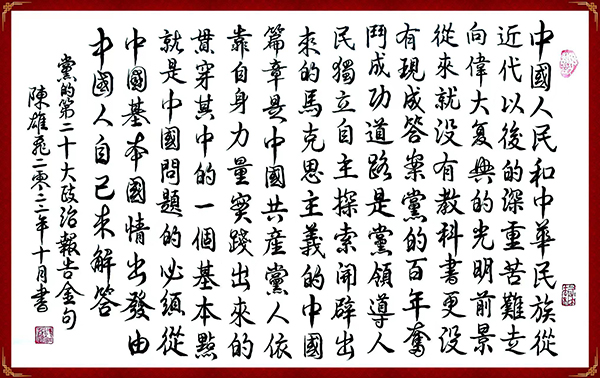 中國人民和中華民族從
近代以後的深重苦難走
向偉大复興的光明前景
從來就没有教科書更没
有現成答案黨的百年奮
鬥成功道路是黨領導人
民獨立自主探索開辟出
來的馬克思主義的中國
篇章是中國共産黨人依
靠自身力量實踐出來的
貫穿其中的一個基本點
就是中國問題的必須從
中國基本國情出發由
中國人自己來解答
黨的第二十大政治報告金句
陳雄飛二零二二年十月書